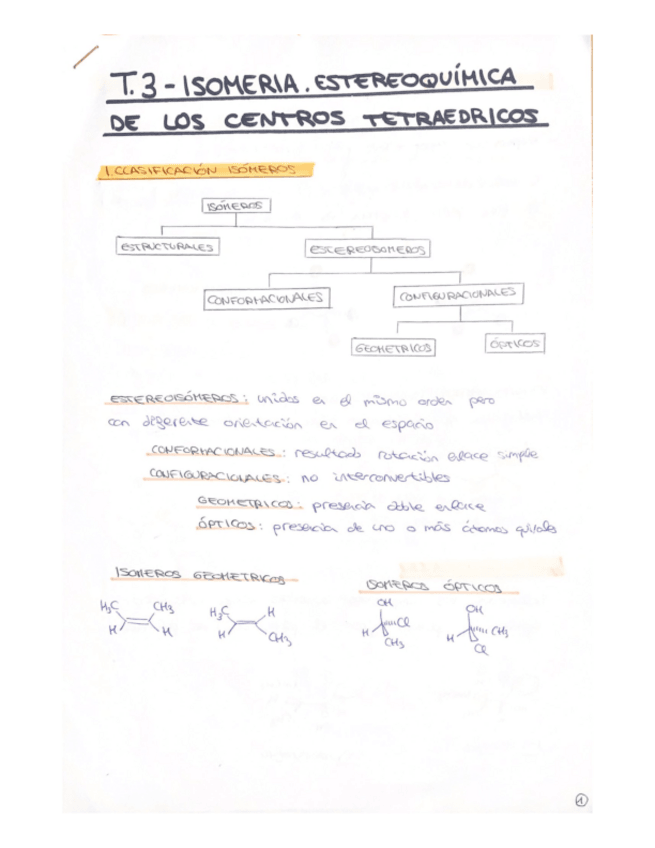 T.3 - ISOMERIA. ESTEREOQUÍMICA
DE LOS CENTROS TETRAEDRICOS
1. CLASIFICACIÓN ISÓMEROS
ISÓMEROS
ESTRUCTURALES
ESTEREOISOMEROS
CONFORMACIONALES
CONFIGURACIONALES
GEOMETRICOS
ÓPTICOS
ESTEREOISÓMEROS: unidos en el mismo orden pero
con diferente orientación en el espacio
CONFORMACIONALES: resultado rotación enlace simple
CONFIGURACIONALES: no interconvertibles
GEOMETRICOS: presencia doble enlace
ÓPTICOS: presencia de uno o más átomos quirales
ISOMEROS GEOMETRICOS
ISOMEROS ÓPTICOS
H₃C CH₃
H H
H₃C H
H CH₃
OH
H Cl
CH₃
OH
H CH₃
Cl
1